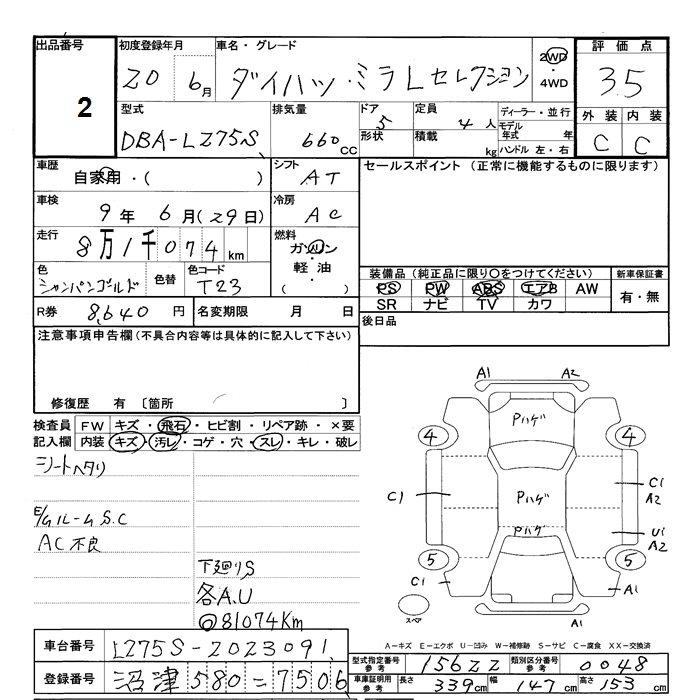 出品番号 初度登録年月 車名・グレード 評価点
2 20 6月 ダイハツ・ミラLセレクション 2WD・4WD 3.5
型式 排気量 ドア 定員 ディーラー・並行 外装 内装
DBA-L275S 660CC 5 4人 モデル年式 年 C C
形状 積載 kg ハンドル 左・右
車歴 シフト セールスポイント (正常に機能するものに限ります)
自家用・( ) AT
車検 冷房
9年 6月(29日) AC
走行 燃料
8万1千074km ガソリン・軽油 ( )
色 色替 色コード 装備品 (純正品に限り○をつけてください) 新車保証書
シャンパンゴールド T23 PS PW ABS エアB AW 有・無
SR ナビ TV カワ
R券 8,640円 名変期限 月 日 後日品
注意事項申告欄 (不具合内容等は具体的に記入して下さい)
修復歴 有 〔箇所 〕
検査員 FW キズ・飛石・ヒビ割・リペア跡・×要
記入欄 内装 キズ・汚レ・コゲ・穴・スレ・キレ・破レ
シートヘタリ
E/gルームS.C
AC不良
下廻りS
各A.U
◎81074Km
A1 A2
Pハゲ
4 4
C1 Pハゲ C1
A2
Pハゲ U1
A2
5 5
C1 A1
スペア A1
A-キズ E-エクボ U-凹み W-補修跡 S-サビ C-腐食 XX-交換済
車台番号 L275S-2023091
型式指定番号 参考 15622 類別区分番号 参考 0048
登録番号 沼津580=7506
車庫証明用 参考 長さ 339cm 幅 147cm 高さ 153cm